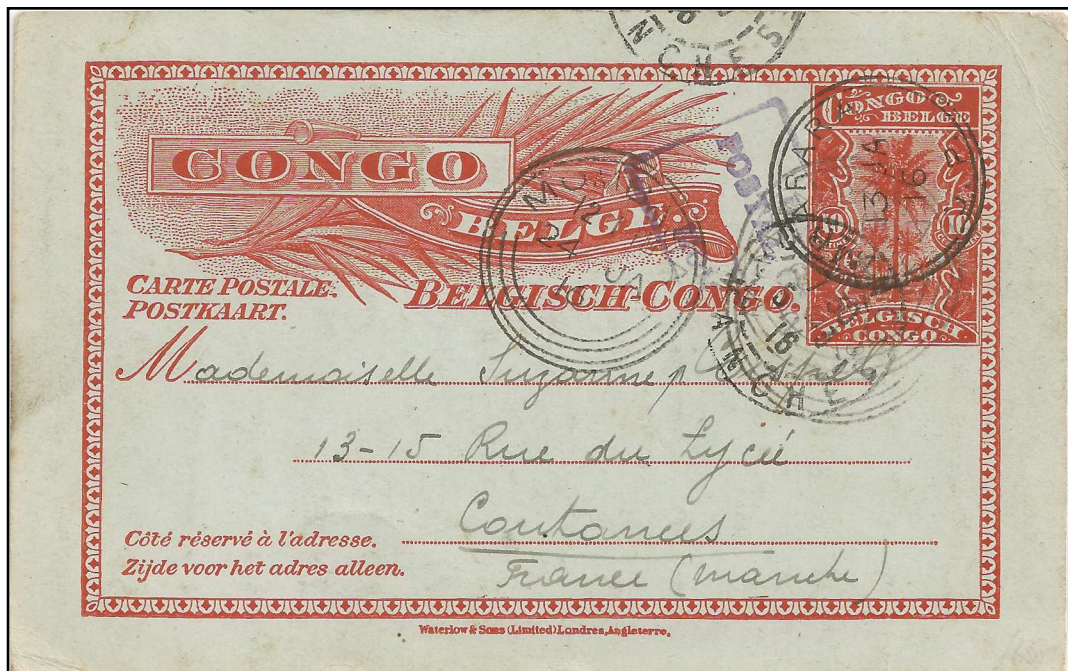 CONGO
BELGE.
CONGO
BELGE
CARTE POSTALE.
POSTKAART.
BELGISCH-CONGO.
BELGISCH
CONGO
13 JA
16
Mademoiselle Suzanne
13-15 Rue du Lycée
Coutances
France (Manche)
Côté réservé à l'adresse.
Zijde voor het adres alleen.
Waterlow & Sons (Limited) Londres, Angleterre.